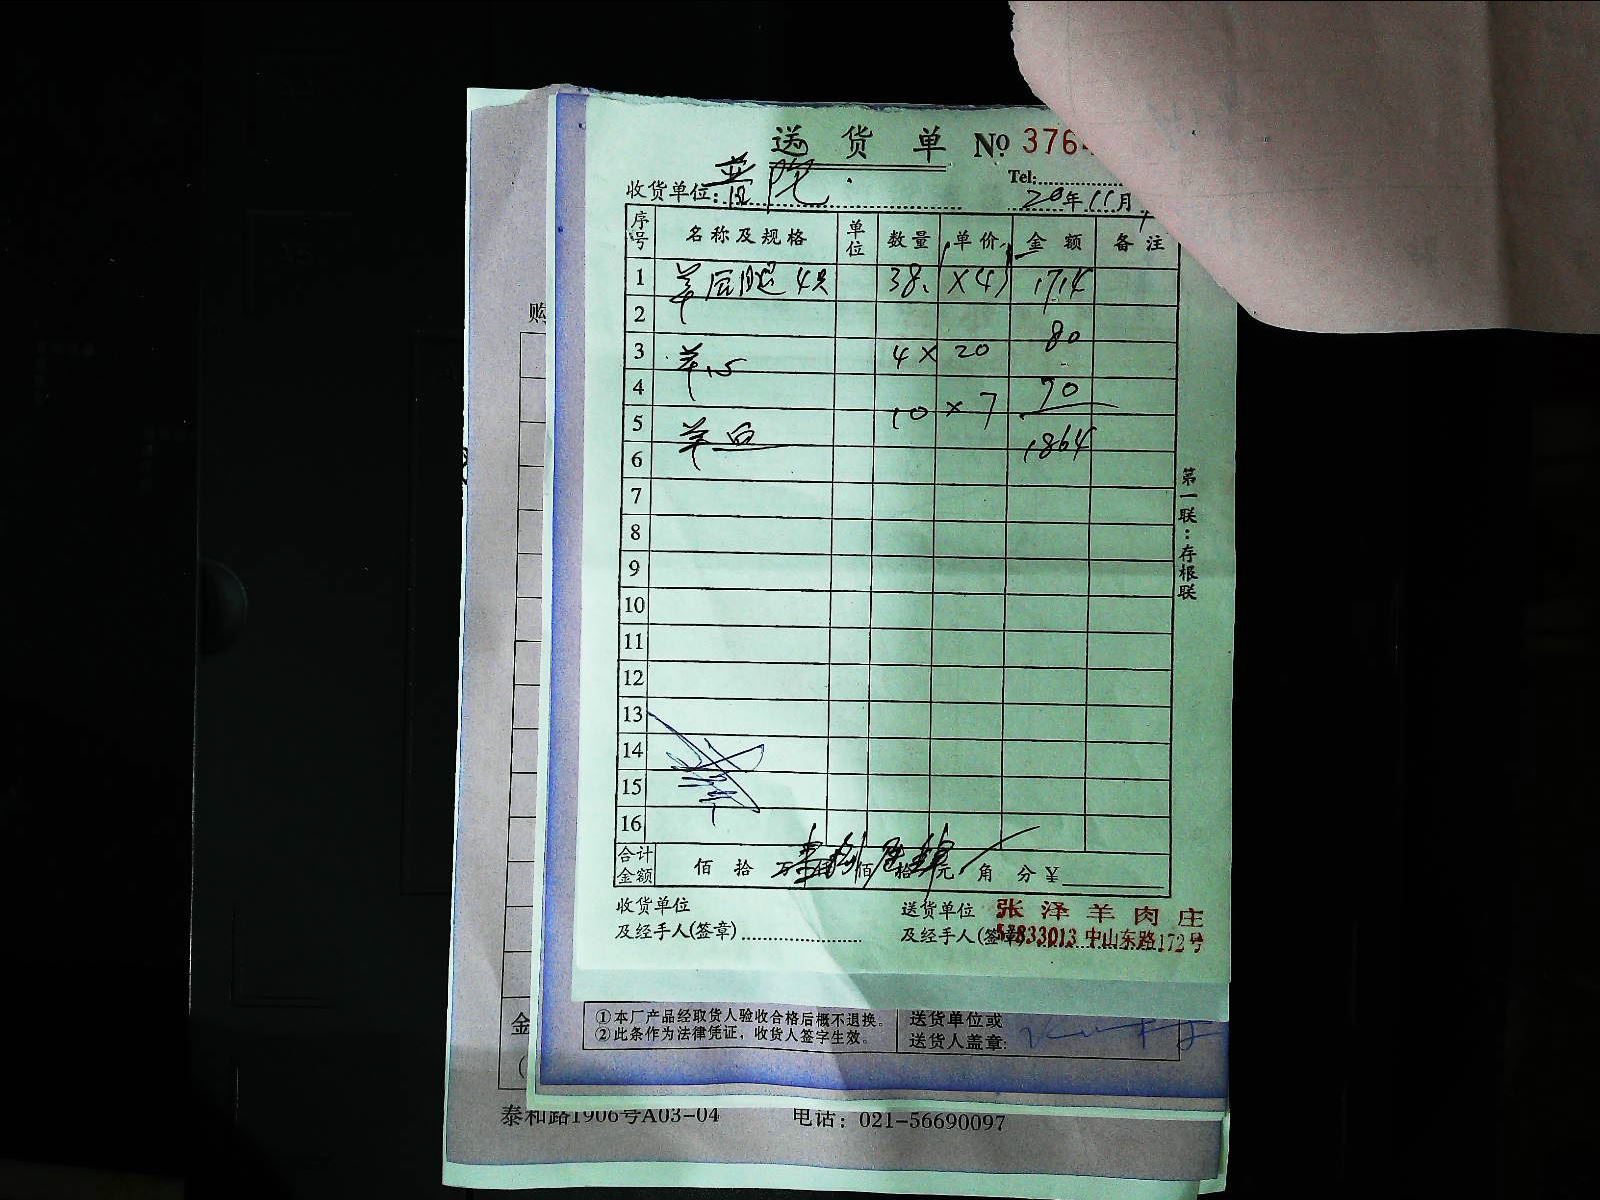 送货单 № 376
Tel:
收货单位: 20年11月
序号 名称及规格 单位 数量 单价 金额 备注
1 羊后腿 4只 38. 1714
2 80
3 羊心 4 × 20
4 70
5 羊血 10 × 7 1864
6
7
8
9
10
11
12
13
14
15
16
合计金额 佰 拾 万 仟 佰 拾 元 角 分 ¥
收货单位
及经手人(签章)
送货单位 张泽羊肉庄
及经手人(签章) 57833013 中山东路172号
第一联:存根联
购
①本厂产品经取货人验收合格后概不退换。
②此条作为法律凭证,收货人签字生效。
送货单位或
送货人盖章:
金
泰和路1906号A03-04 电话:021-56690097